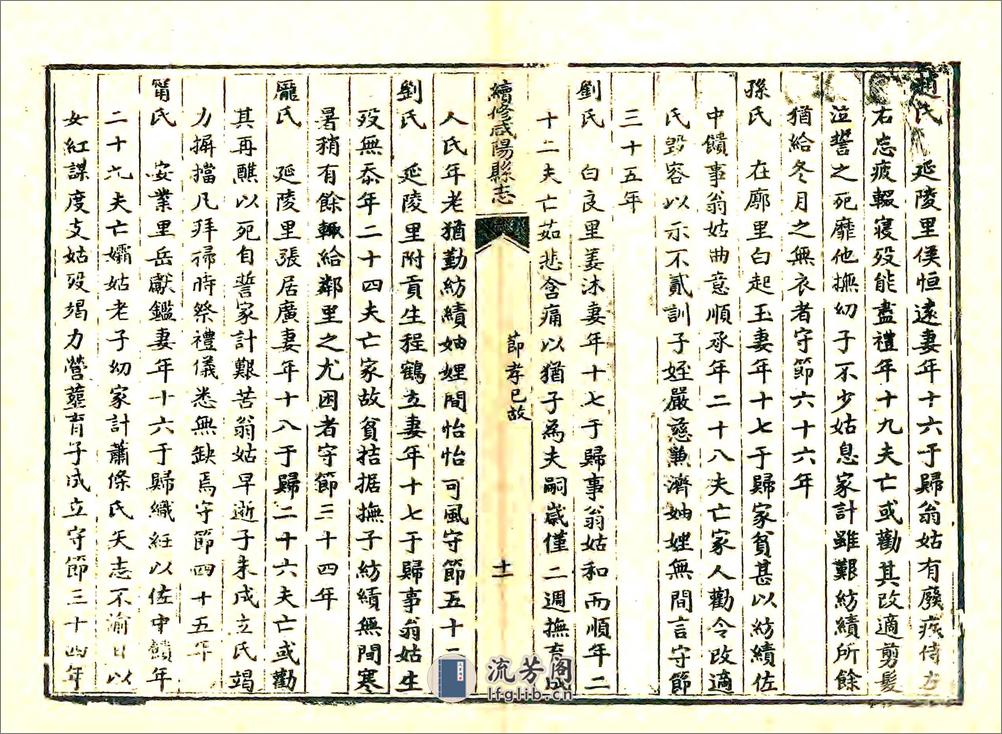 趙氏 延陵里侯恒遠妻年十六于歸翁姑有廢疾侍左
右忘疲輟寢歿能盡禮年十九夫亡或勸其改適剪髮
泣誓之死靡他撫幼子不少姑息家計雖艱紡績所餘
猶給冬月之無衣者守節六十六年
孫氏 在廓里白起玉妻年十七于歸家貧甚以紡績佐
中饋事翁姑曲意順承年二十八夫亡家人勸令改適
氏毀容以示不貳訓子姪嚴慈兼濟妯娌無間言守節
三十五年
劉氏 白良里姜沐妻年十七于歸事翁姑和而順年二
十二夫亡茹悲含痛以猶子為夫嗣歲僅二週撫育成
續修咸陽縣志
節孝已故
十一
人氏年老猶勤紡績妯娌間怡怡可風守節五十二
劉氏 延陵里附貢生程鶴立妻年十七于歸事翁姑生
歿無忝年二十四夫亡家故貧拮据撫子紡績無間寒
暑稍有餘輒給鄰里之尤困者守節三十四年
龐氏 延陵里張居廣妻年十八于歸二十六夫亡或勸
其再醮以死自誓家計艱苦翁姑早逝子未成立氏竭
力摒擋凡拜掃時祭禮儀悉無缺焉守節四十五年
甯氏 安業里岳獻鑑妻年十六于歸織紝以佐中饋年
二十九夫亡孀姑老子幼家計蕭條氏矢志不渝日以
女紅謀度支姑歿竭力營葬育子成立守節三十四年
流芳阁
lfglib.cn